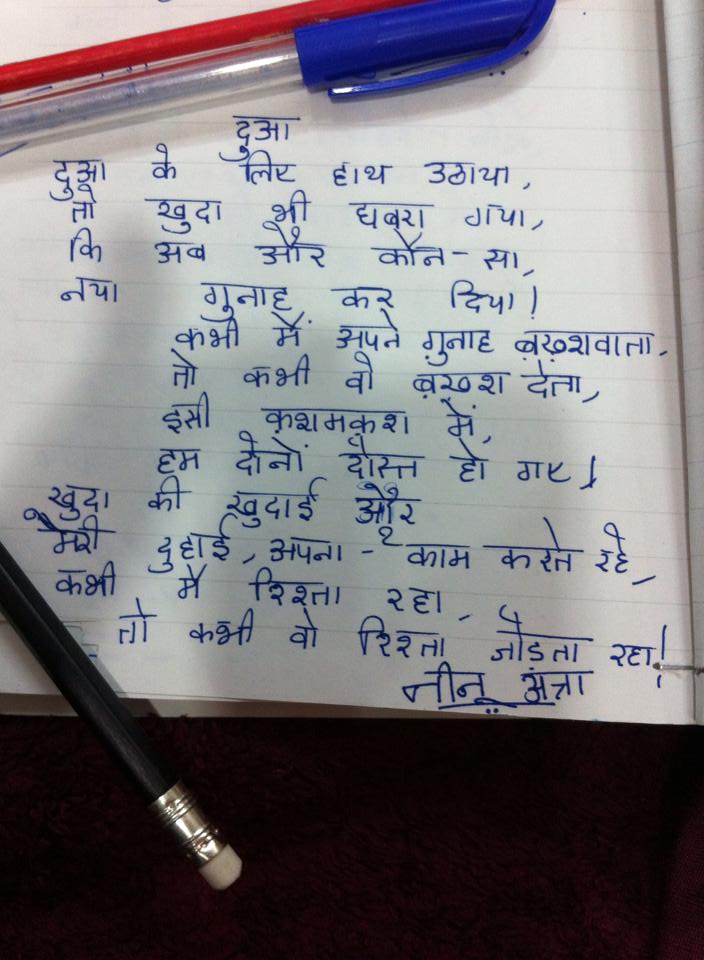 दुआ
दुआ के लिए हाथ उठाया,
तो खुदा भी घबरा गया,
कि अब और कौन-सा,
नया गुनाह कर दिया!
कभी मैं अपने गुनाह बख़्शवाता,
तो कभी वो बख़्श देता,
इसी कशमकश में,
हम दोनों दोस्त हो गए!
खुदा की खुदाई और
मेरी दुहाई, अपना-२ काम करते रहे,
कभी मैं रिश्ता रहा,
तो कभी वो रिश्ता जोड़ता रहा!
नीनू